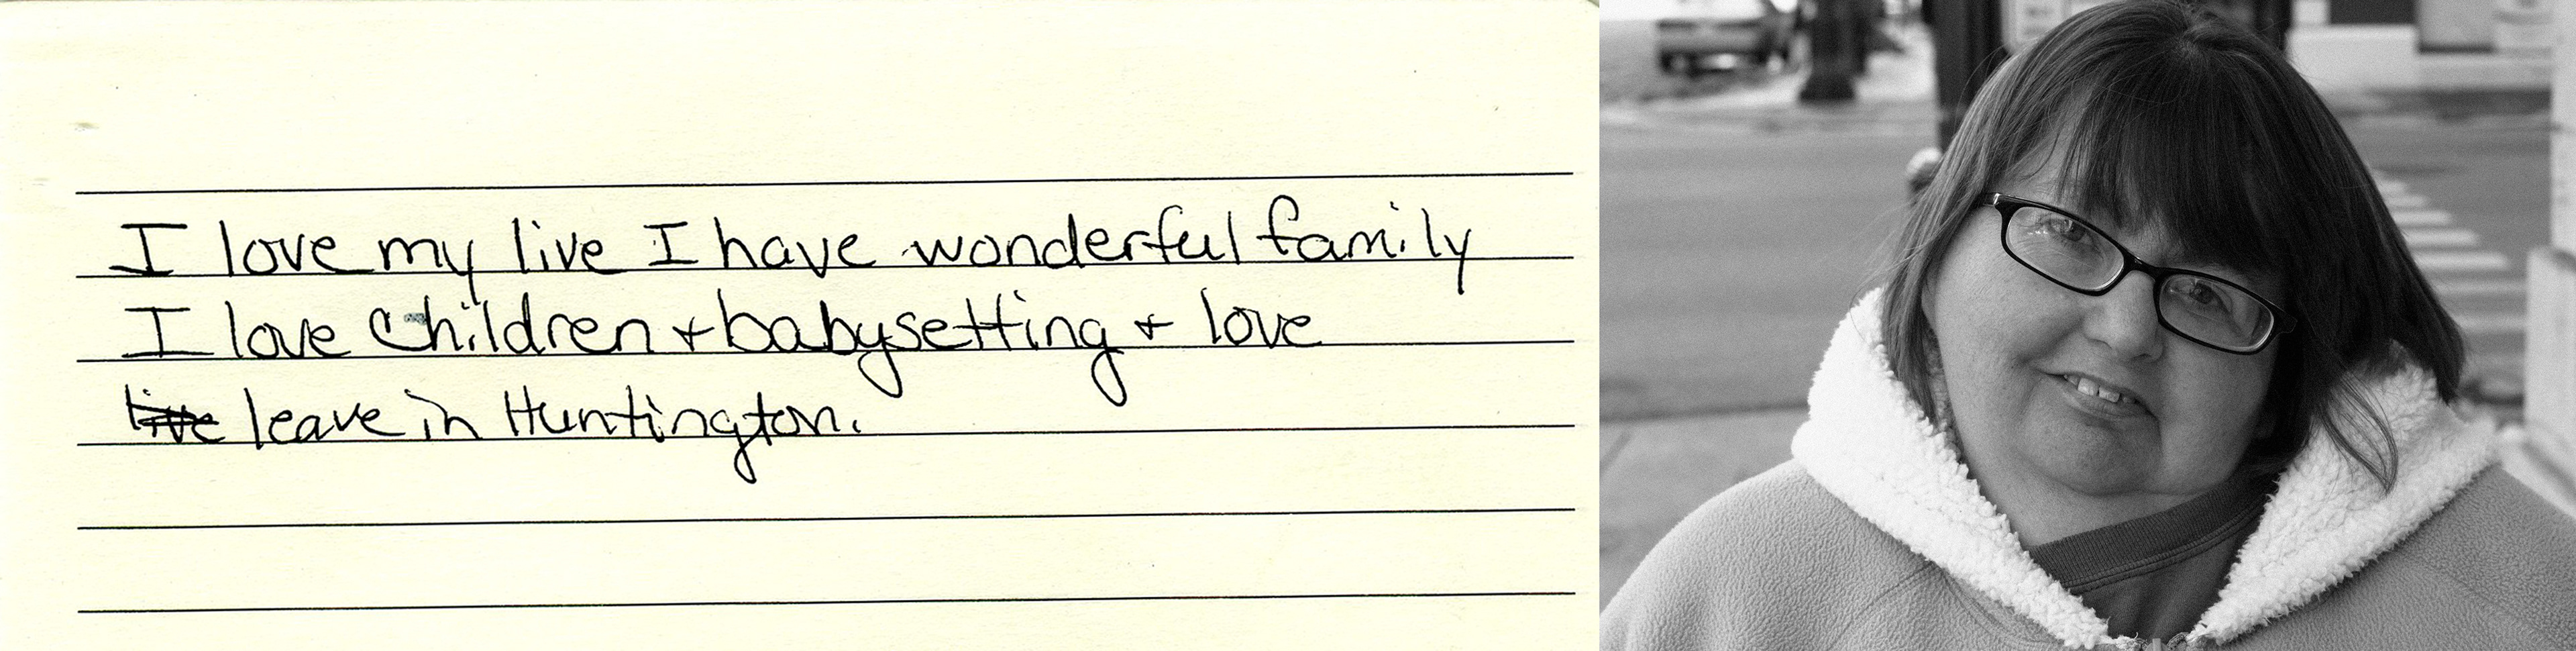 I love my live I have wonderful family
I love children + babysetting + love
live leave in Huntington.